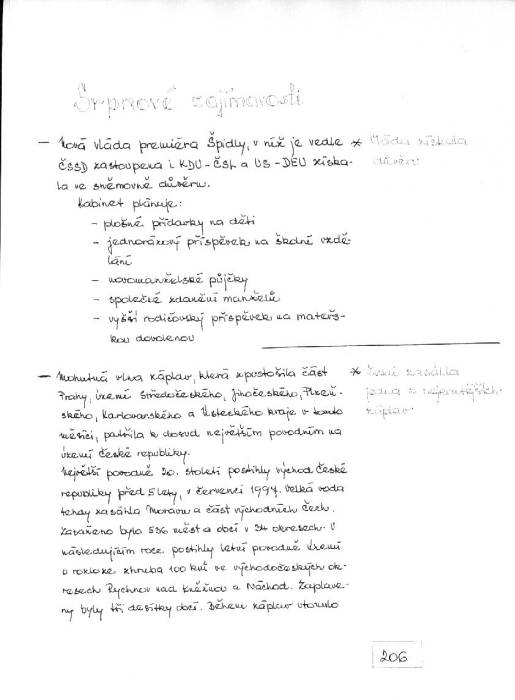 Srpnové zajímavosti
– Nová vláda premiéra Špidly, v níž je vedle * Vláda získala
ČSSD zastoupena i KDU-ČSL a US-DEU získa- důvěru
la ve sněmovně důvěru.
Kabinet plánuje:
– plošné přídavky na děti
– jednorázový příspěvek na školní vzdě-
lání
– novomanželské půjčky
– společné zdanění manželů
– vyšší rodičovský příspěvek na mateřs-
kou dovolenou
– Mohutná vlna záplav, která zpustošila část * Zemi zasáhla
Prahy, území Středočeského, Jihočeského, Plzeň- jedna z nejhorších
ského, Karlovarského a Ústeckého kraje v tomto záplav
měsíci, patřila k dosud největším povodním na
území České republiky.
Největší povodně 20. století postihly východ České
republiky před 5 lety, v červenci 1997. Velká voda
tehdy zasáhla Moravu a část východních Čech.
Zasaženo bylo 536 měst a obcí v 34 okresech. V
následujícím roce postihly letní povodně území
o rozloze zhruba 100 km² ve východočeských ok-
resech Rychnov nad Kněžnou a Náchod. Zaplave-
ny byly tři desítky obcí. Během záplav utonulo
206